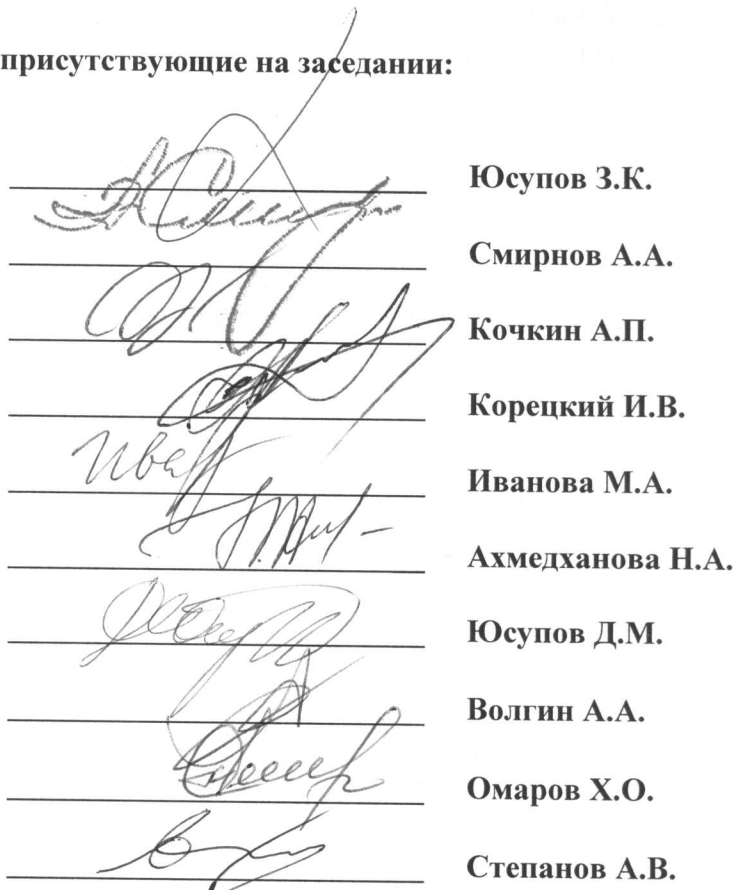 присутствующие на заседании:
Юсупов З.К.
Смирнов А.А.
Кочкин А.П.
Корецкий И.В.
Иванова М.А.
Ахмедханова Н.А.
Юсупов Д.М.
Волгин А.А.
Омаров Х.О.
Степанов А.В.